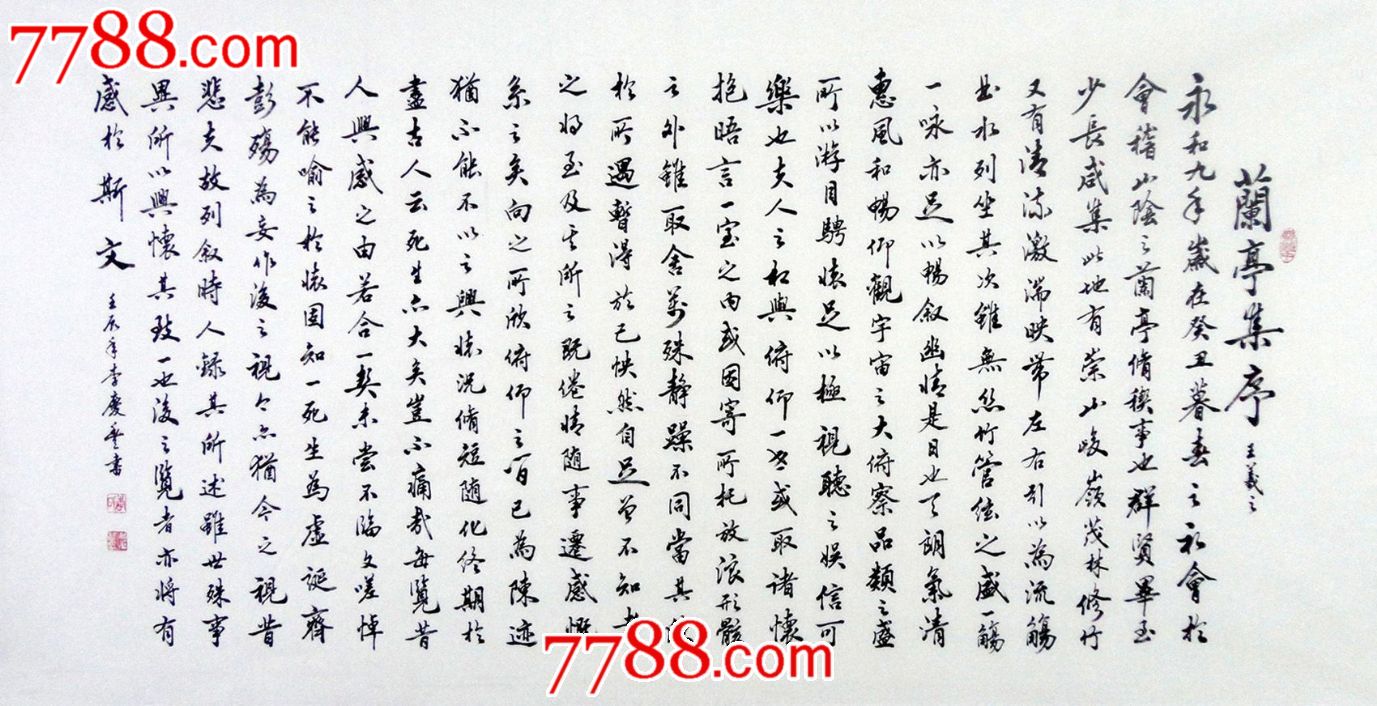 7788.com
蘭亭集序 王羲之
永和九年歲在癸丑暮春之初會於
會稽山陰之蘭亭脩稧事也群賢畢至
少長咸集此地有崇山峻嶺茂林修竹
又有清流激湍映帶左右引以為流觴
曲水列坐其次雖無絲竹管絃之盛一觴
一咏亦足以暢敘幽情是日也天朗氣清
惠風和暢仰觀宇宙之大俯察品類之盛
所以游目騁懷足以極視聽之娛信可
樂也夫人之相與俯仰一世或取諸懷
抱晤言一室之內或因寄所托放浪形骸
之外雖取舍萬殊靜躁不同當其欣
於所遇暫得於己怏然自足曾不知老
之將至及其所之既倦情隨事遷感慨
系之矣向之所欣俯仰之間已為陳迹
猶不能不以之興懷況脩短隨化終期於
盡古人云死生亦大矣豈不痛哉每覽昔
人興感之由若合一契未嘗不臨文嗟悼
不能喻之於懷固知一死生為虛誕齊
彭殤為妄作後之視今亦猶今之視昔
悲夫故列敘時人錄其所述雖世殊事
異所以興懷其致一也後之覽者亦將有
感於斯文 壬辰年李慶書
7788.com